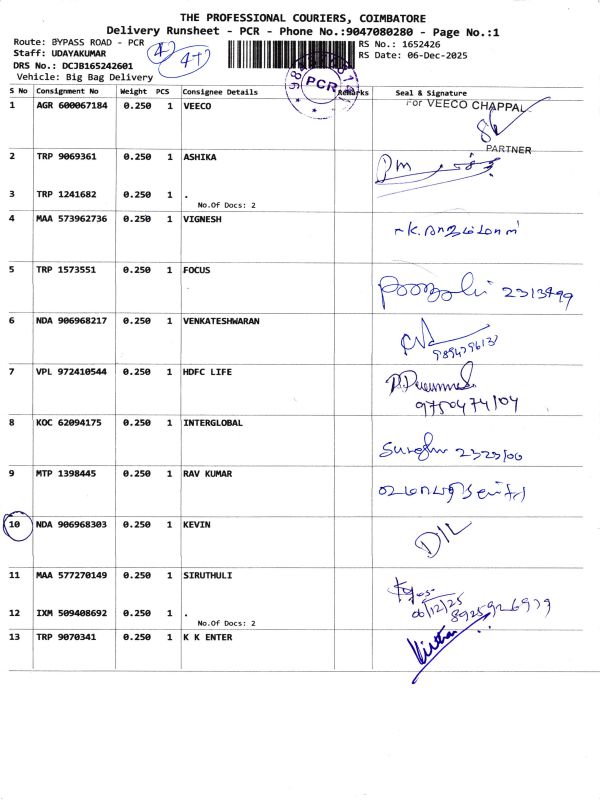 THE PROFESSIONAL COURIERS, COIMBATORE
Delivery Runsheet - PCR - Phone No.:9047080280 - Page No.:1
Route: BYPASS ROAD - PCR
RS No.: 1652426
Staff: UDAYAKUMAR
RS Date: 06-Dec-2025
DRS No.: DCJB165242601
Vehicle: Big Bag Delivery
PCR
S No Consignment No Weight PCS Consignee Details Remarks Seal & Signature
1 AGR 600067184 0.250 1 VEECO
For VEECO CHAPPAL
PARTNER
2 TRP 9069361 0.250 1 ASHIKA
3 TRP 1241682 0.250 1 .
No.Of Docs: 2
4 MAA 573962736 0.250 1 VIGNESH
5 TRP 1573551 0.250 1 FOCUS
2313499
6 NDA 906968217 0.250 1 VENKATESHWARAN
7 VPL 972410544 0.250 1 HDFC LIFE
9750474104
8 KOC 62094175 0.250 1 INTERGLOBAL
9 MTP 1398445 0.250 1 RAV KUMAR
10 NDA 906968303 0.250 1 KEVIN
D/L
11 MAA 577270149 0.250 1 SIRUTHULI
06/12/25
8925926979
12 IXM 509408692 0.250 1 .
No.Of Docs: 2
13 TRP 9070341 0.250 1 K K ENTER